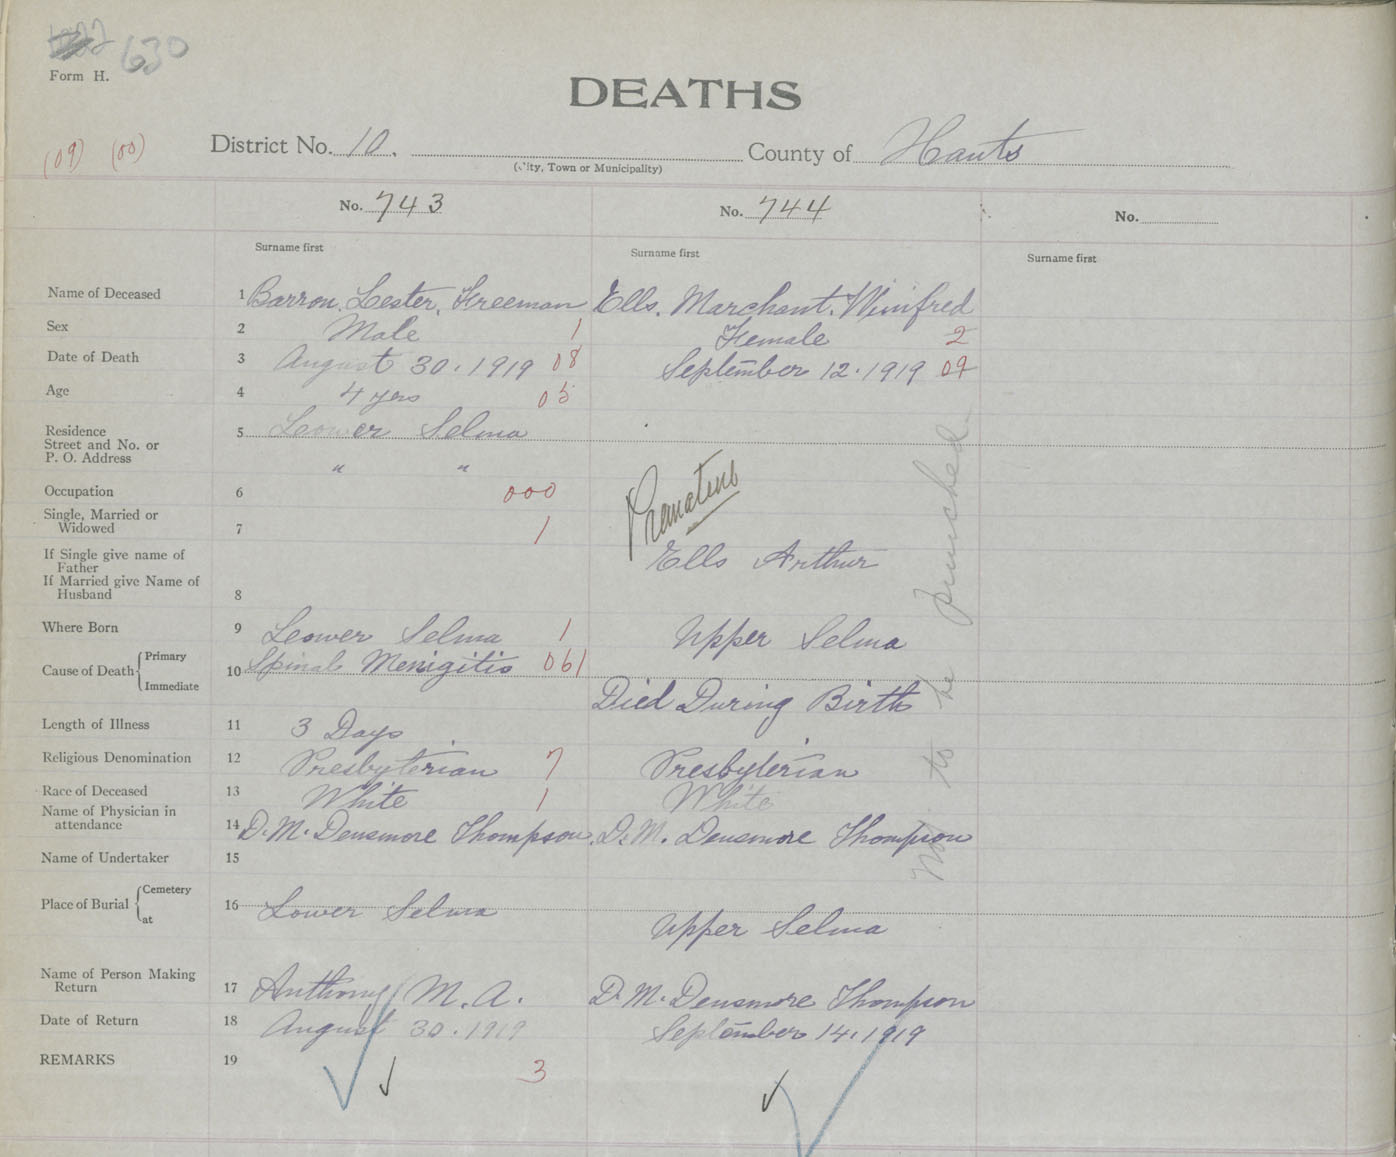 630
Form H.
DEATHS
(09) (00)
District No. 10. County of Hants
(City, Town or Municipality)
No. 743 No. 744 No.
Surname first Surname first Surname first
Name of Deceased 1 Barron, Lester, Freeman Ells, Marchant, Winifred
Sex 2 Male 1 Female 2
Date of Death 3 August 30.1919 08 September 12.1919 09
Age 4 4 yrs 05
Residence 5 Leower Selma
Street and No. or
P. O. Address " "
Occupation 6 000
Single, Married or
Widowed 7 1
If Single give name of
Father Ells Arthur
If Married give Name of
Husband 8
Where Born 9 Leower Selma 1 Upper Selma
Cause of Death { Primary 10 Spinal Menigitis 061
Immediate Died During Birth
Length of Illness 11 3 Days
Religious Denomination 12 Presbyterian 7 Presbyterian
Race of Deceased 13 White 1 White
Name of Physician in
attendance 14 D.M. Densmore Thompson. D.M. Densmore Thompson
Name of Undertaker 15
Place of Burial { Cemetery 16 Lower Selma
at Upper Selma
Name of Person Making
Return 17 Anthony M.A. D.M. Densmore Thompson
Date of Return 18 August 30.1919 September 14.1919
REMARKS 19 3
Not to be punched